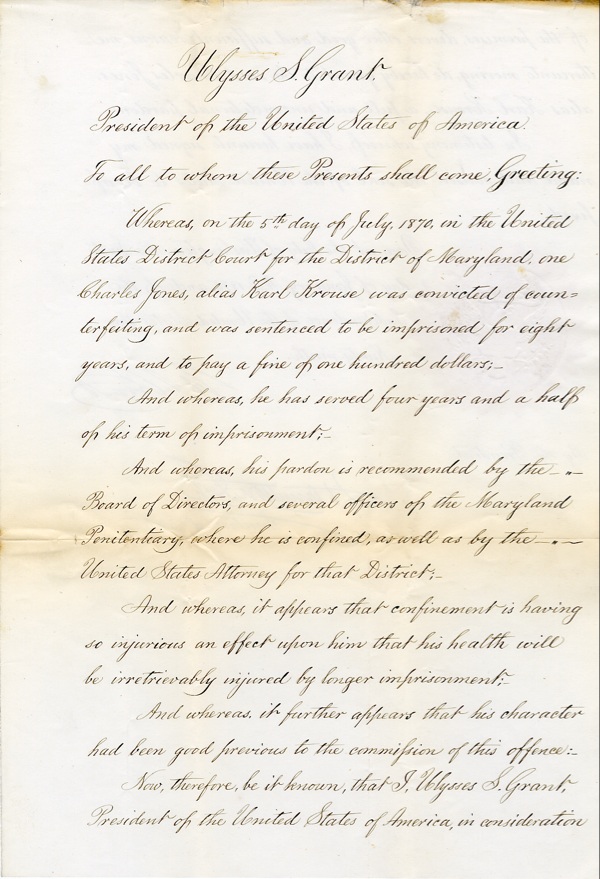 Ulysses S. Grant.
President of the United States of America.
To all to whom these Presents shall come, Greeting:
Whereas, on the 5th day of July, 1870, in the United
States District Court for the District of Maryland, one
Charles Jones, alias Karl Krouse was convicted of coun=
terfeiting, and was sentenced to be imprisoned for eight
years, and to pay a fine of one hundred dollars;—
And whereas, he has served four years and a half
of his term of imprisonment;—
And whereas, his pardon is recommended by the —"—
Board of Directors, and several officers of the Maryland
Penitentiary, where he is confined, as well as by the —"—
United States Attorney for that District;—
And whereas, it appears that confinement is having
so injurious an effect upon him that his health will
be irretrievably injured by longer imprisonment;—
And whereas, it further appears that his character
had been good previous to the commission of this offence:—
Now, therefore, be it known, that I, Ulysses S. Grant,
President of the United States of America, in consideration